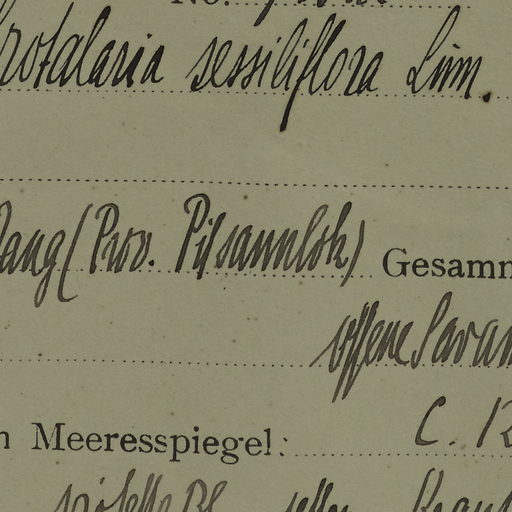 No.
Crotalaria sessiliflora Linn.
Wang (Prov. Pitsannlok) Gesamm
offene Savan
Meeresspiegel: C. 12